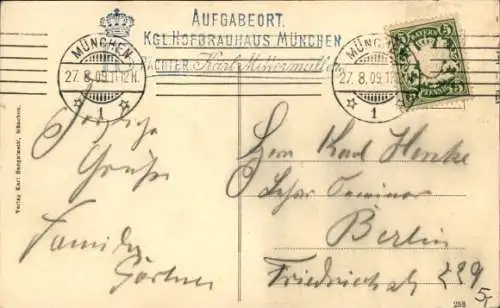 AUFGABEORT.
KGL.HOFBRÄUHAUS MÜNCHEN
PÄCHTER: Karl Mittermüller
MÜNCHEN
27. 8. 09. 11-12 N.
1
MÜNCHEN
27. 8. 09. 11
1
BAYERN
5
5
5
5
Herzliche
Grüße
Familie
Gärtner
Herrn Karl Henke
Berlin
Friedrichstr 229
Verlag Karl München.
258
5.